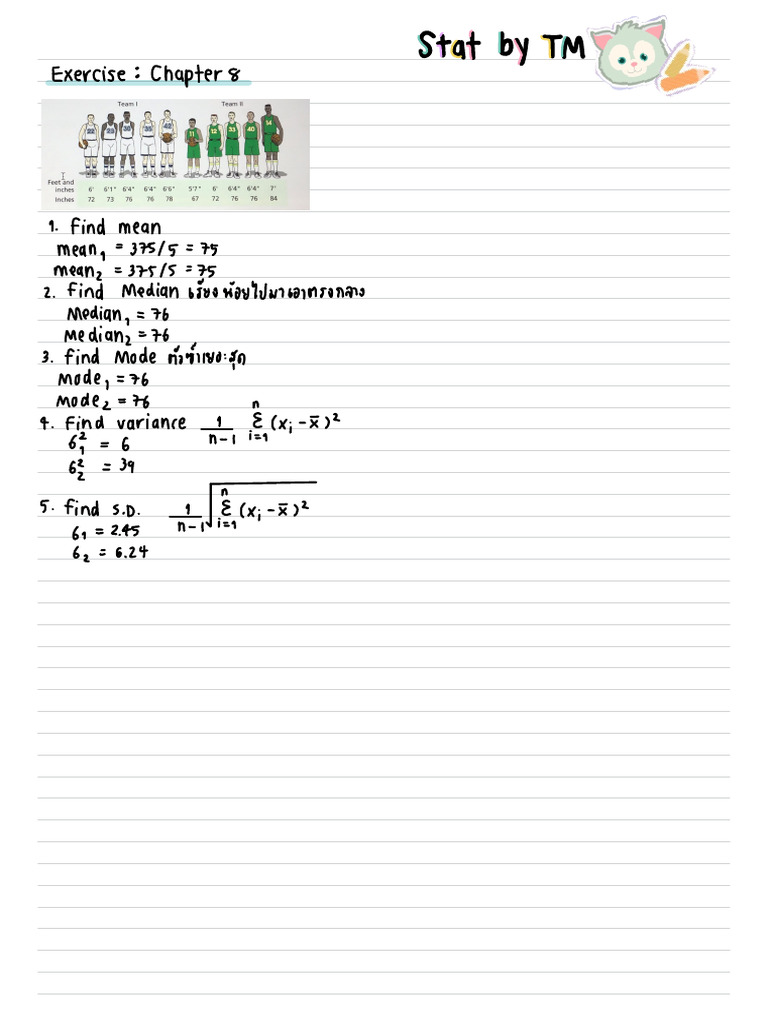 Stat by TM
Exercise : Chapter 8
Team I Team II
22 25 30 35 42 11 12 33 40 14
Feet and inches 6' 6'1" 6'4" 6'4" 6'6" 5'7" 6' 6'4" 6'4" 7'
Inches 72 73 76 76 78 67 72 76 76 84
1. find mean
mean₁ = 375/5 = 75
mean₂ = 375/5 = 75
2. find Median เรียงน้อยไปมากเอาตรงกลาง
Median₁ = 76
Median₂ = 76
3. find Mode ตัวซ้ำเยอะสุด
Mode₁ = 76
Mode₂ = 76
4. find variance 1/(n-1) Σ_{i=1}^{n} (xᵢ - x̄)²
6₁² = 6
6₂² = 39
5. find S.D. 1/(n-1) √Σ_{i=1}^{n} (xᵢ - x̄)²
6₁ = 2.45
6₂ = 6.24